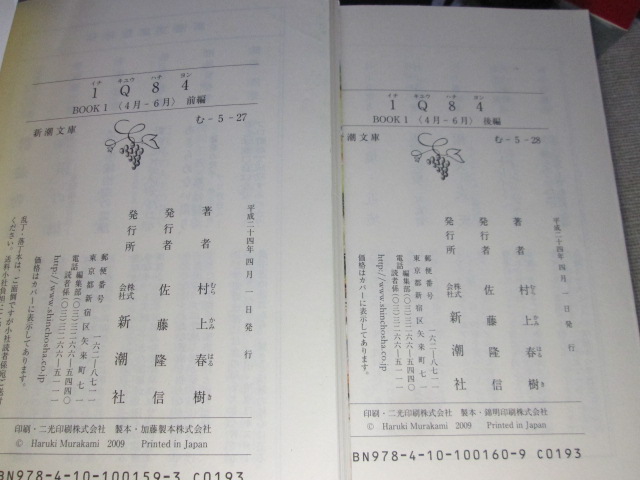 イチ キユウ ハチ ヨン
1 Q 8 4
BOOK 1 〈4月-6月〉 前編
新潮文庫
む-5-27
平成二十四年四月一日発行
著者 村上春樹
むら かみ はる き
発行者 佐藤隆信
発行所 株式会社 新潮社
郵便番号 一六二-八七一一
東京都新宿区矢来町七一
電話 編集部(〇三)三二六六-五四四〇
読者係(〇三)三二六六-五一一一
http://www.shinchosha.co.jp
価格はカバーに表示してあります。
乱丁・落丁本は、ご面倒ですが小社読者係宛ご送付
ください。送料小社負担にて
印刷・二光印刷株式会社 製本・加藤製本株式会社
© Haruki Murakami 2009 Printed in Japan
BN978-4-10-100159-3 C0193
イチ キユウ ハチ ヨン
1 Q 8 4
BOOK 1 〈4月-6月〉 後編
潮文庫
む-5-28
平成二十四年四月一日発行
著者 村上春樹
むら かみ はる き
発行者 佐藤隆信
発行所 株式会社 新潮社
郵便番号 一六二-八七一一
東京都新宿区矢来町七一
電話 編集部(〇三)三二六六-五四四〇
読者係(〇三)三二六六-五一一一
http://www.shinchosha.co.jp
価格はカバーに表示してあります。
印刷・二光印刷株式会社 製本・錦明印刷株式会社
© Haruki Murakami 2009 Printed in Japan
BN978-4-10-100160-9 C0193